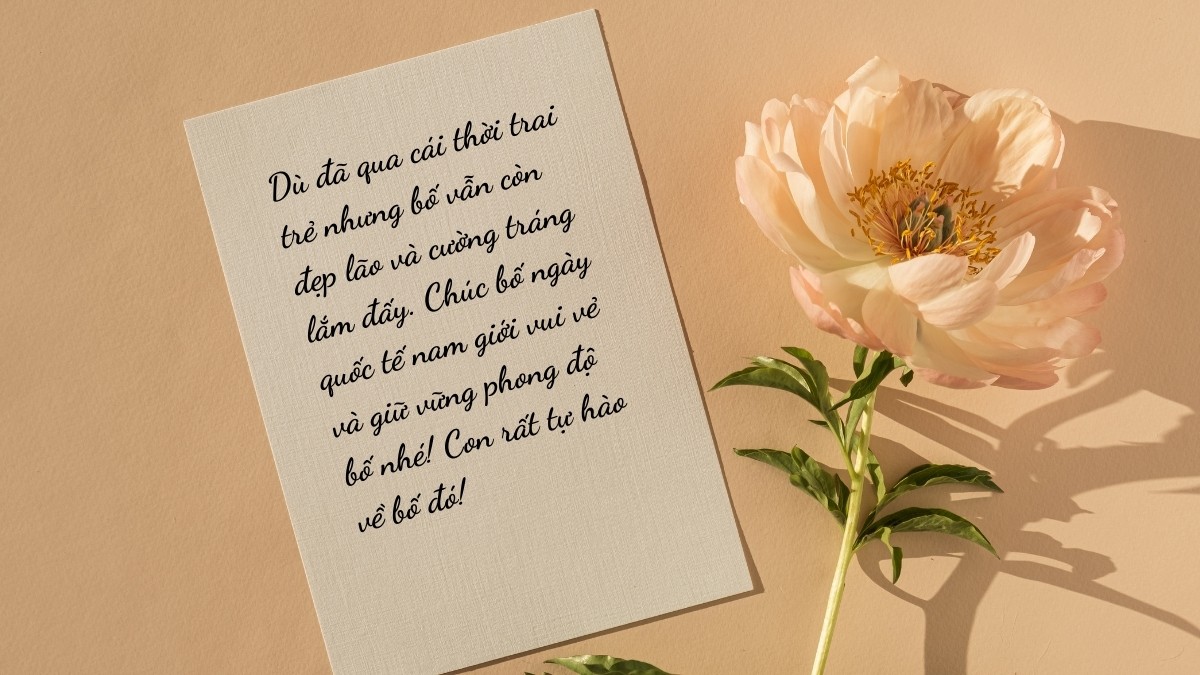 Dù đã qua cái thời trai
trẻ nhưng bố vẫn còn
đẹp lão và cường tráng
lắm đấy. Chúc bố ngày
quốc tế nam giới vui vẻ
và giữ vững phong độ
bố nhé! Con rất tự hào
về bố đó!